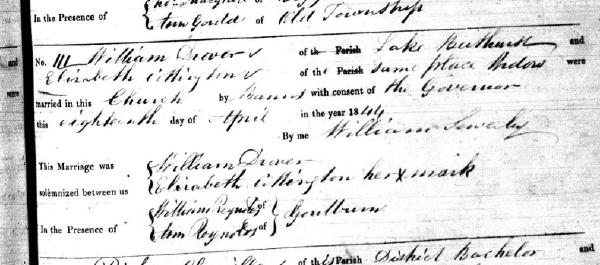 In the Presence of of Old Township
No. 111 William Drover of the Parish Lake Bathurst and
Elizabeth of the Parish same place Widow were
married in this Church by Banns with consent of the Governor
this eighteenth day of April in the year 1844
By me William Sowerby
This Marriage was William Drover
solemnized between us Elizabeth her x mark
William Reynolds of
In the Presence of Ann Reynolds of Goulburn
of this Parish District Bachelor and